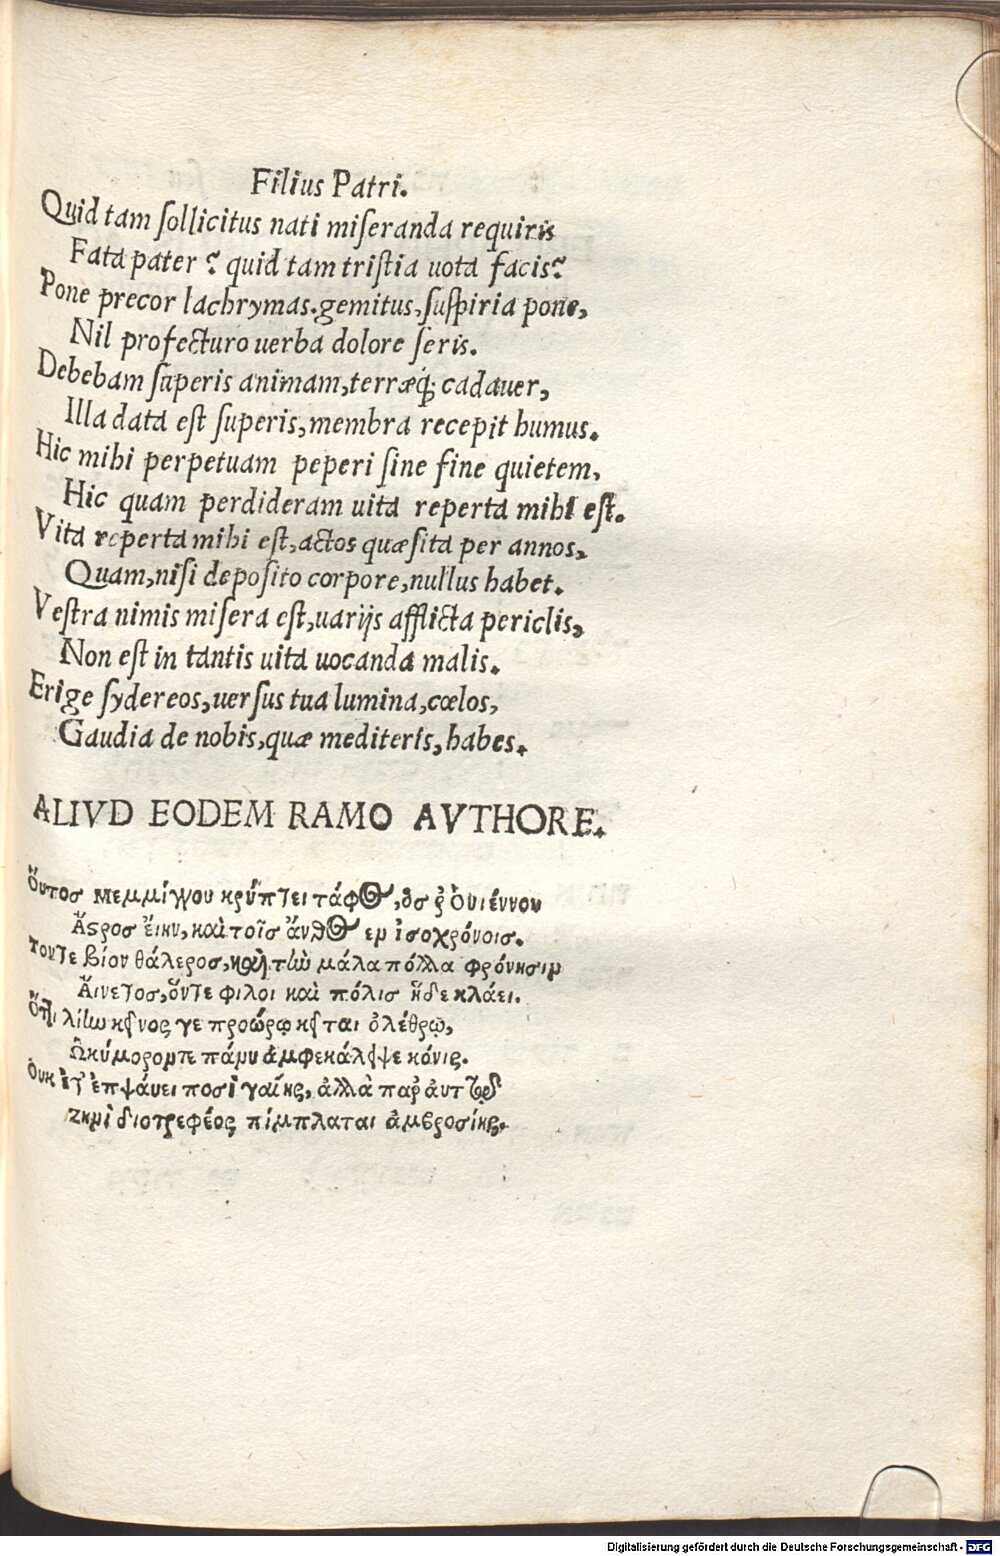 Filius Patri.
Quid tam ſollicitus nati miſeranda requiris
Fata pater? quid tam triſtia uota facis?
Pone precor lachrymas.gemitus,ſuſpiria pone,
Nil profecturo uerba dolore ſeris.
Debebam ſuperis animam,terræq́; cadauer,
Illa data eſt ſuperis,membra recepit humus.
Hic mihi perpetuam peperi ſine fine quietem,
Hic quam perdideram uita reperta mihi eſt.
Vita reperta mihi eſt,actos quæſita per annos,
Quam,niſi depoſito corpore,nullus habet.
Veſtra nimis miſera eſt,uarijs afflicta periclis,
Non eſt in tantis uita uocanda malis.
Erige ſydereos,uerſus tua lumina,cœlos,
Gaudia de nobis,quæ mediteris,habes.
ALIVD EODEM RAMO AVTHORE.
Ὅυτος μεμμίγγου κρύπτει τάφος,ὃς ῥ Ὁυιέννου
Ἄςρος ἔικυ,καὶ τοῖς ἄνθος εμ ἰσοχρόνοις.
Τούτε βίον θάλερος,καὶ τὼ μάλα πόλλα φρόνησιμ
Ἄινετος,ὅντε φιλοι καὶ πόλις ἥδε κλάει.
Ὅττι λίω κεῖνος γε προώρῳ κεῖται ὀλέθρῳ,
Ὠκύμορομτε πάμυ ἀμφεκάλυψε κόνις.
Ὀυκ ἐπψάυει ποσὶ γαίης, ἀλλὰ παρ
διοτρεφέος πίμπλαται ἀμβροσίης.